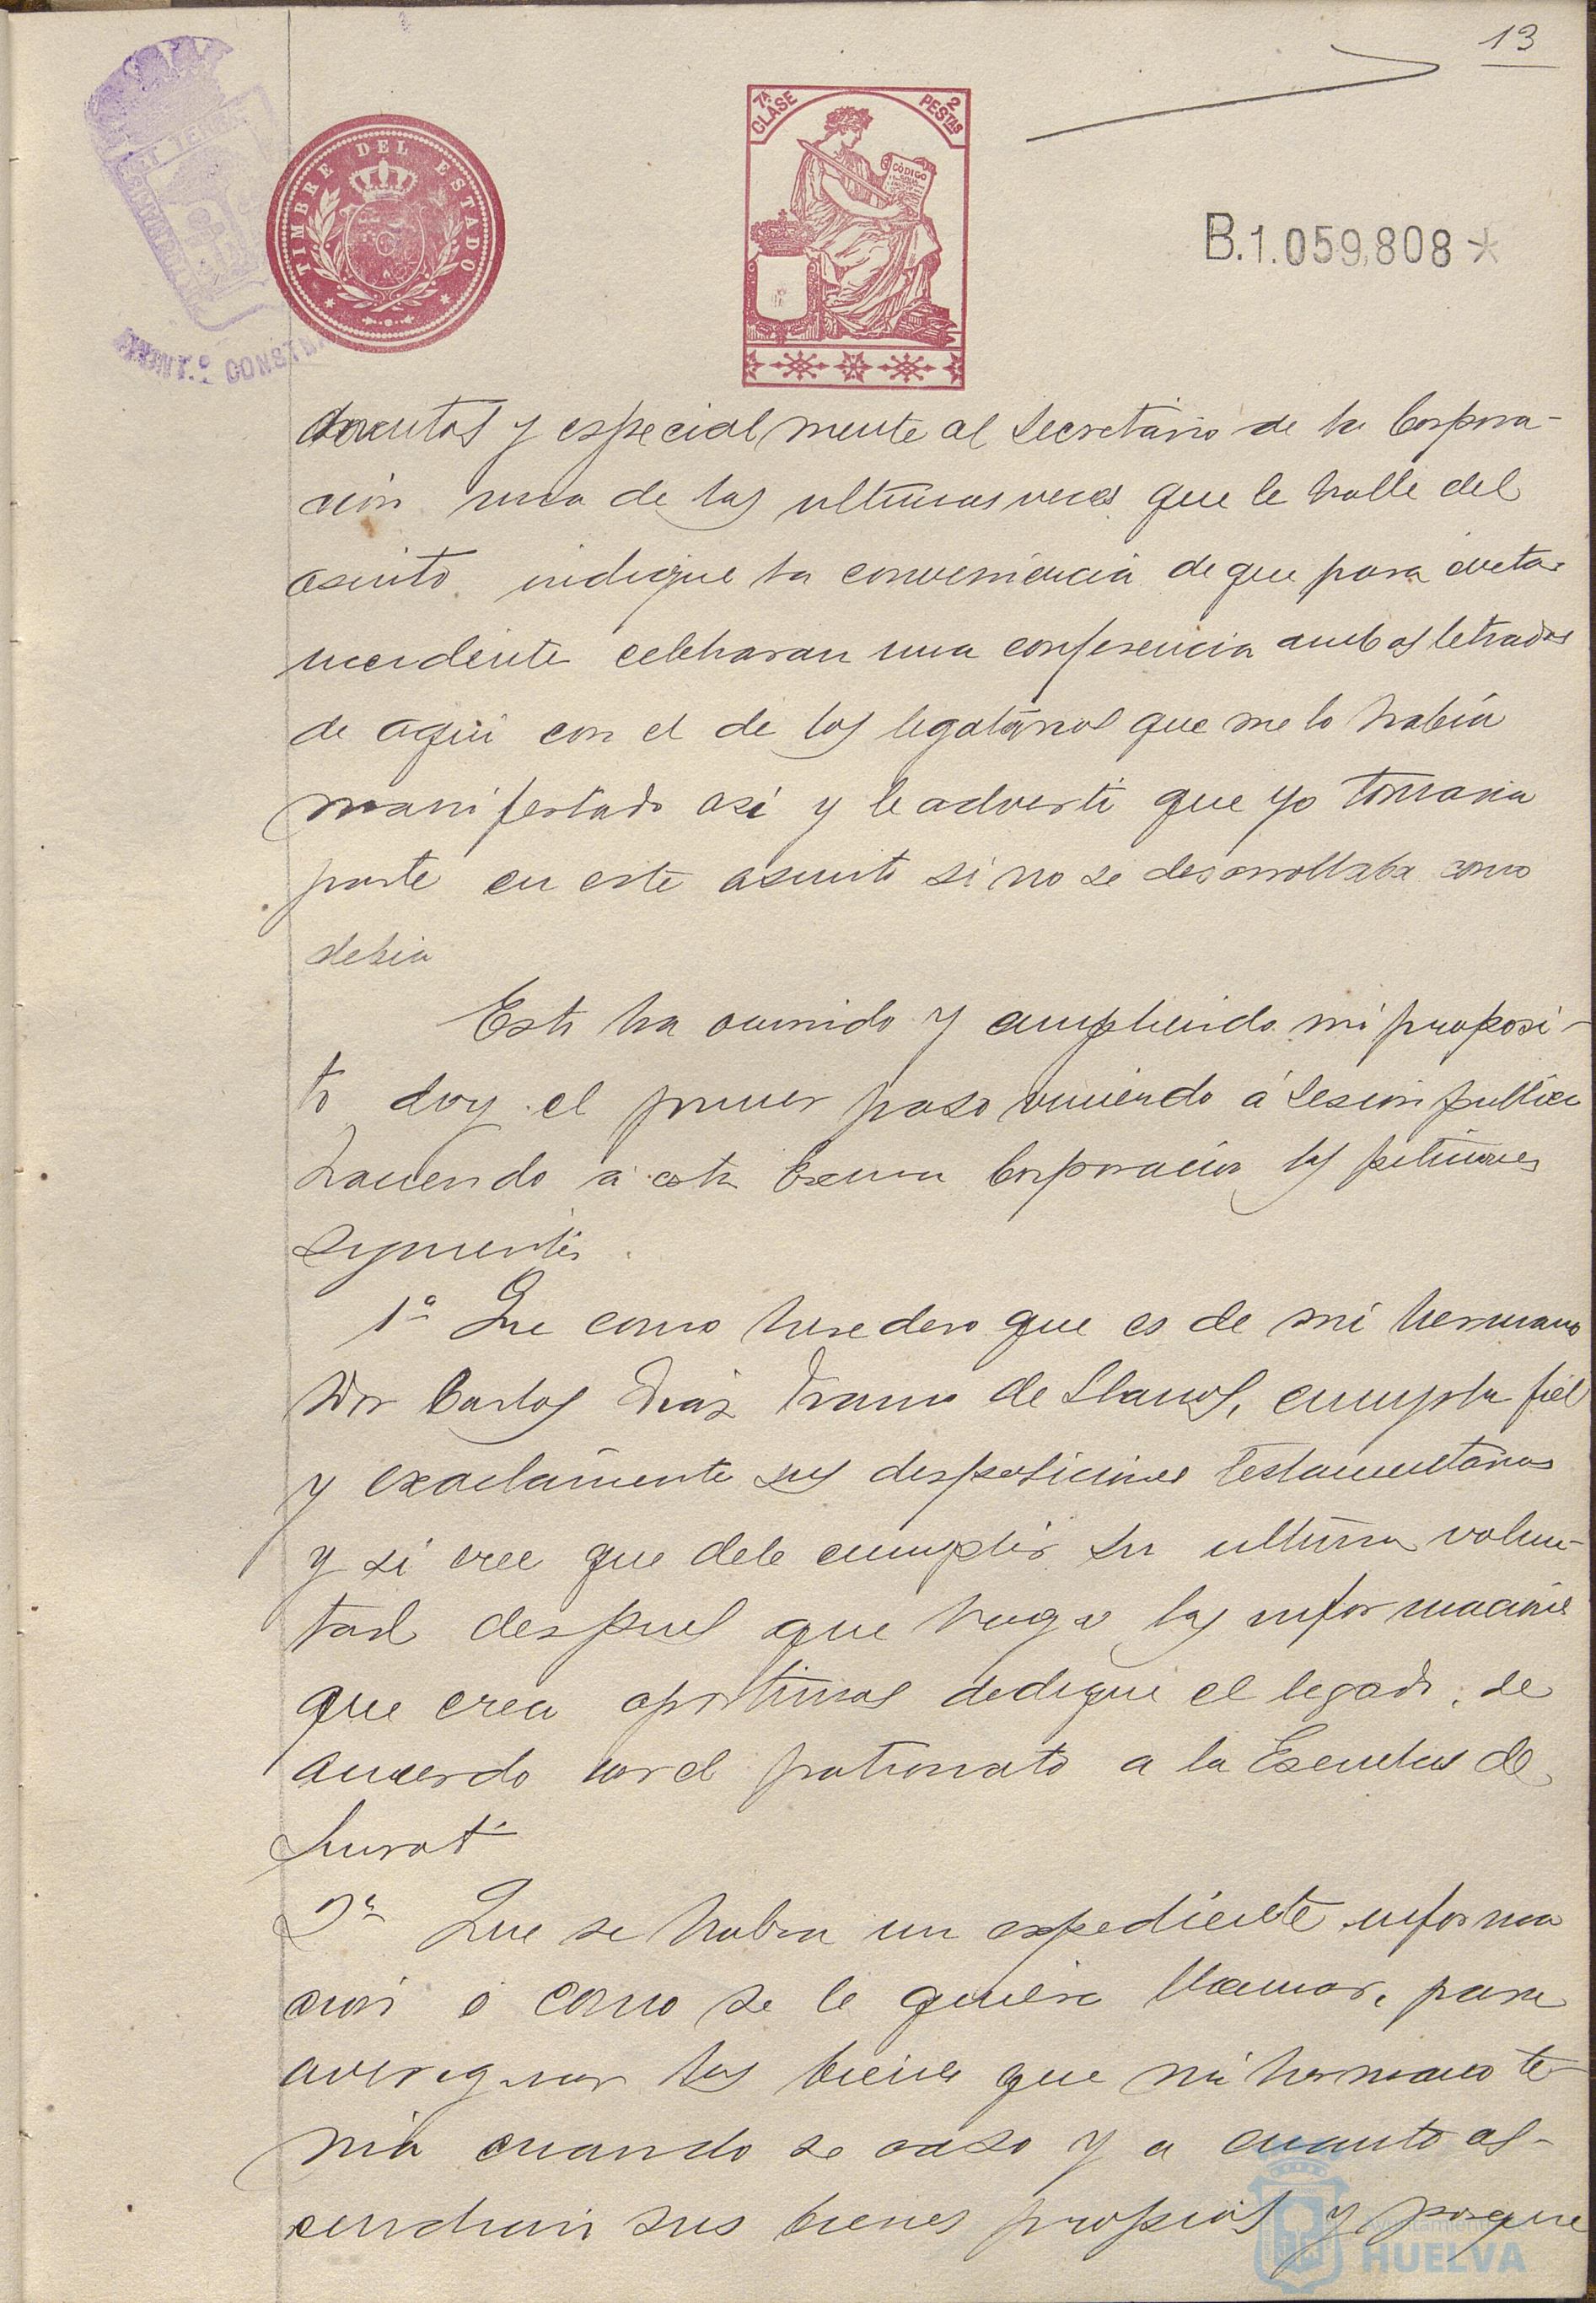 13
TIMBRE DEL ESTADO
7ª CLASE
2 PESTAS
CÓDIGO
B.1.059,808*
CONSTI
y especialmente al Secretario de la Corpora-
ción una de las ultimas veces que le hallé del
asunto indiqué la conveniencia de que para evitar
incidente celebraran una conferencia ambos letrados
de aqui con el de los legatarios que me lo habia
manifestado asi y le adverti que yo tomaria
parte en este asunto si no se desarrollaba como
debia
Esto ha ocurrido y cumpliendo mi proposi-
to doy el primer paso viniendo á sesion publica
haciendo á esta Excma Corporacion las peticiones
siguientes.
1ª Que como heredero que es de mi hermano
Don Carlos Diaz Franco de Llanos, cumpla fiel
y exactamente sus disposiciones testamentarias
y si cree que debe cumplir su ultima volun-
tad despues que haga las informaciones
que crea oportunas dedique el legado, de
acuerdo con el patronato a la Escuelas de
Siurot
2ª Que se habra un expediente informa
cion o como se le quiera llamar, para
averiguar los bienes que mi hermano te-
nia cuando se caso y a cuanto as-
cendian sus bienes propios y porque
Ayuntamiento de
HUELVA